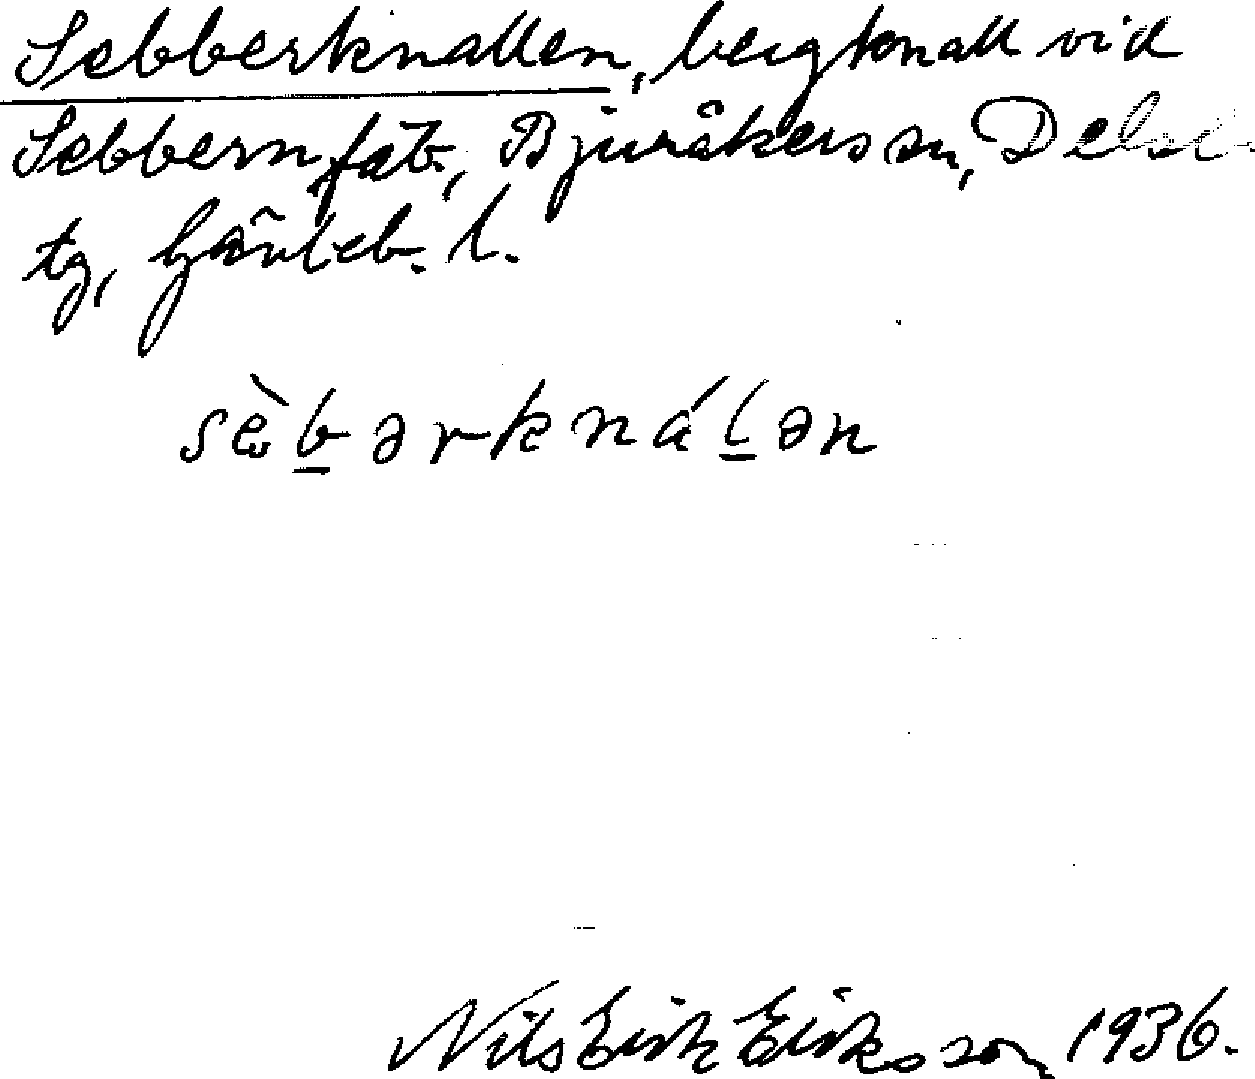 Sebberknallen, bergknall vid
Sebbern, fäb., Bjuråkers sn, Dels
tg, Gävleb. l.
sè̱bərkná̱lən
Nils Erik Eriksson 1936.